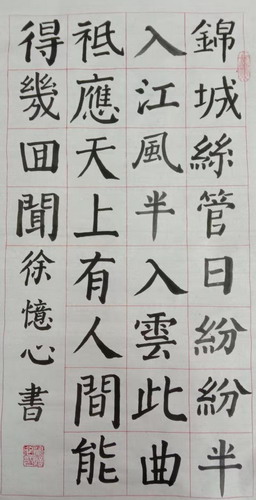 錦城絲管日紛紛半
入江風半入雲此曲
祗應天上有人間能
得幾回聞徐憶心書